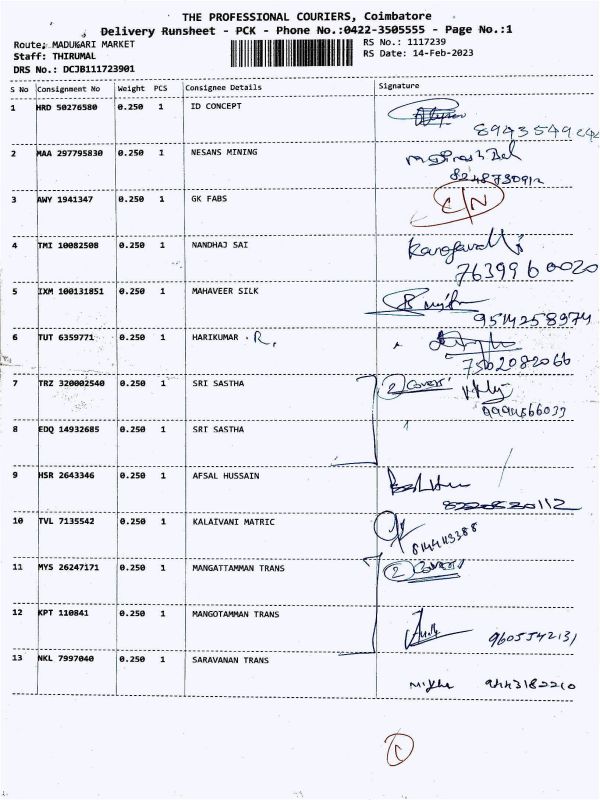 THE PROFESSIONAL COURIERS, Coimbatore
Delivery Runsheet - PCK - Phone No.:0422-3505555 - Page No.:1
Route; MADUKARI MARKET RS No.: 1117239
Staff: THIRUMAL RS Date: 14-Feb-2023
DRS No.: DCJB111723901
S No Consignment No Weight PCS Consignee Details Signature
1 HRD 50276580 0.250 1 ID CONCEPT
2 MAA 297795830 0.250 1 NESANS MINING
8248730912
3 AWY 1941347 0.250 1 GK FABS C/N
4 TMI 10082508 0.250 1 NANDHAJ SAI
7639960020
5 IXM 100131851 0.250 1 MAHAVEER SILK
9514258974
6 TUT 6359771 0.250 1 HARIKUMAR . R,
7502082066
7 TRZ 320002540 0.250 1 SRI SASTHA 2 Covers
8 EDQ 14932685 0.250 1 SRI SASTHA
9 HSR 2643346 0.250 1 AFSAL HUSSAIN
10 TVL 7135542 0.250 1 KALAIVANI MATRIC
11 MYS 26247171 0.250 1 MANGATTAMMAN TRANS 2 Covers
12 KPT 110841 0.250 1 MANGOTAMMAN TRANS
9605542131
13 NKL 7997040 0.250 1 SARAVANAN TRANS
9443182210